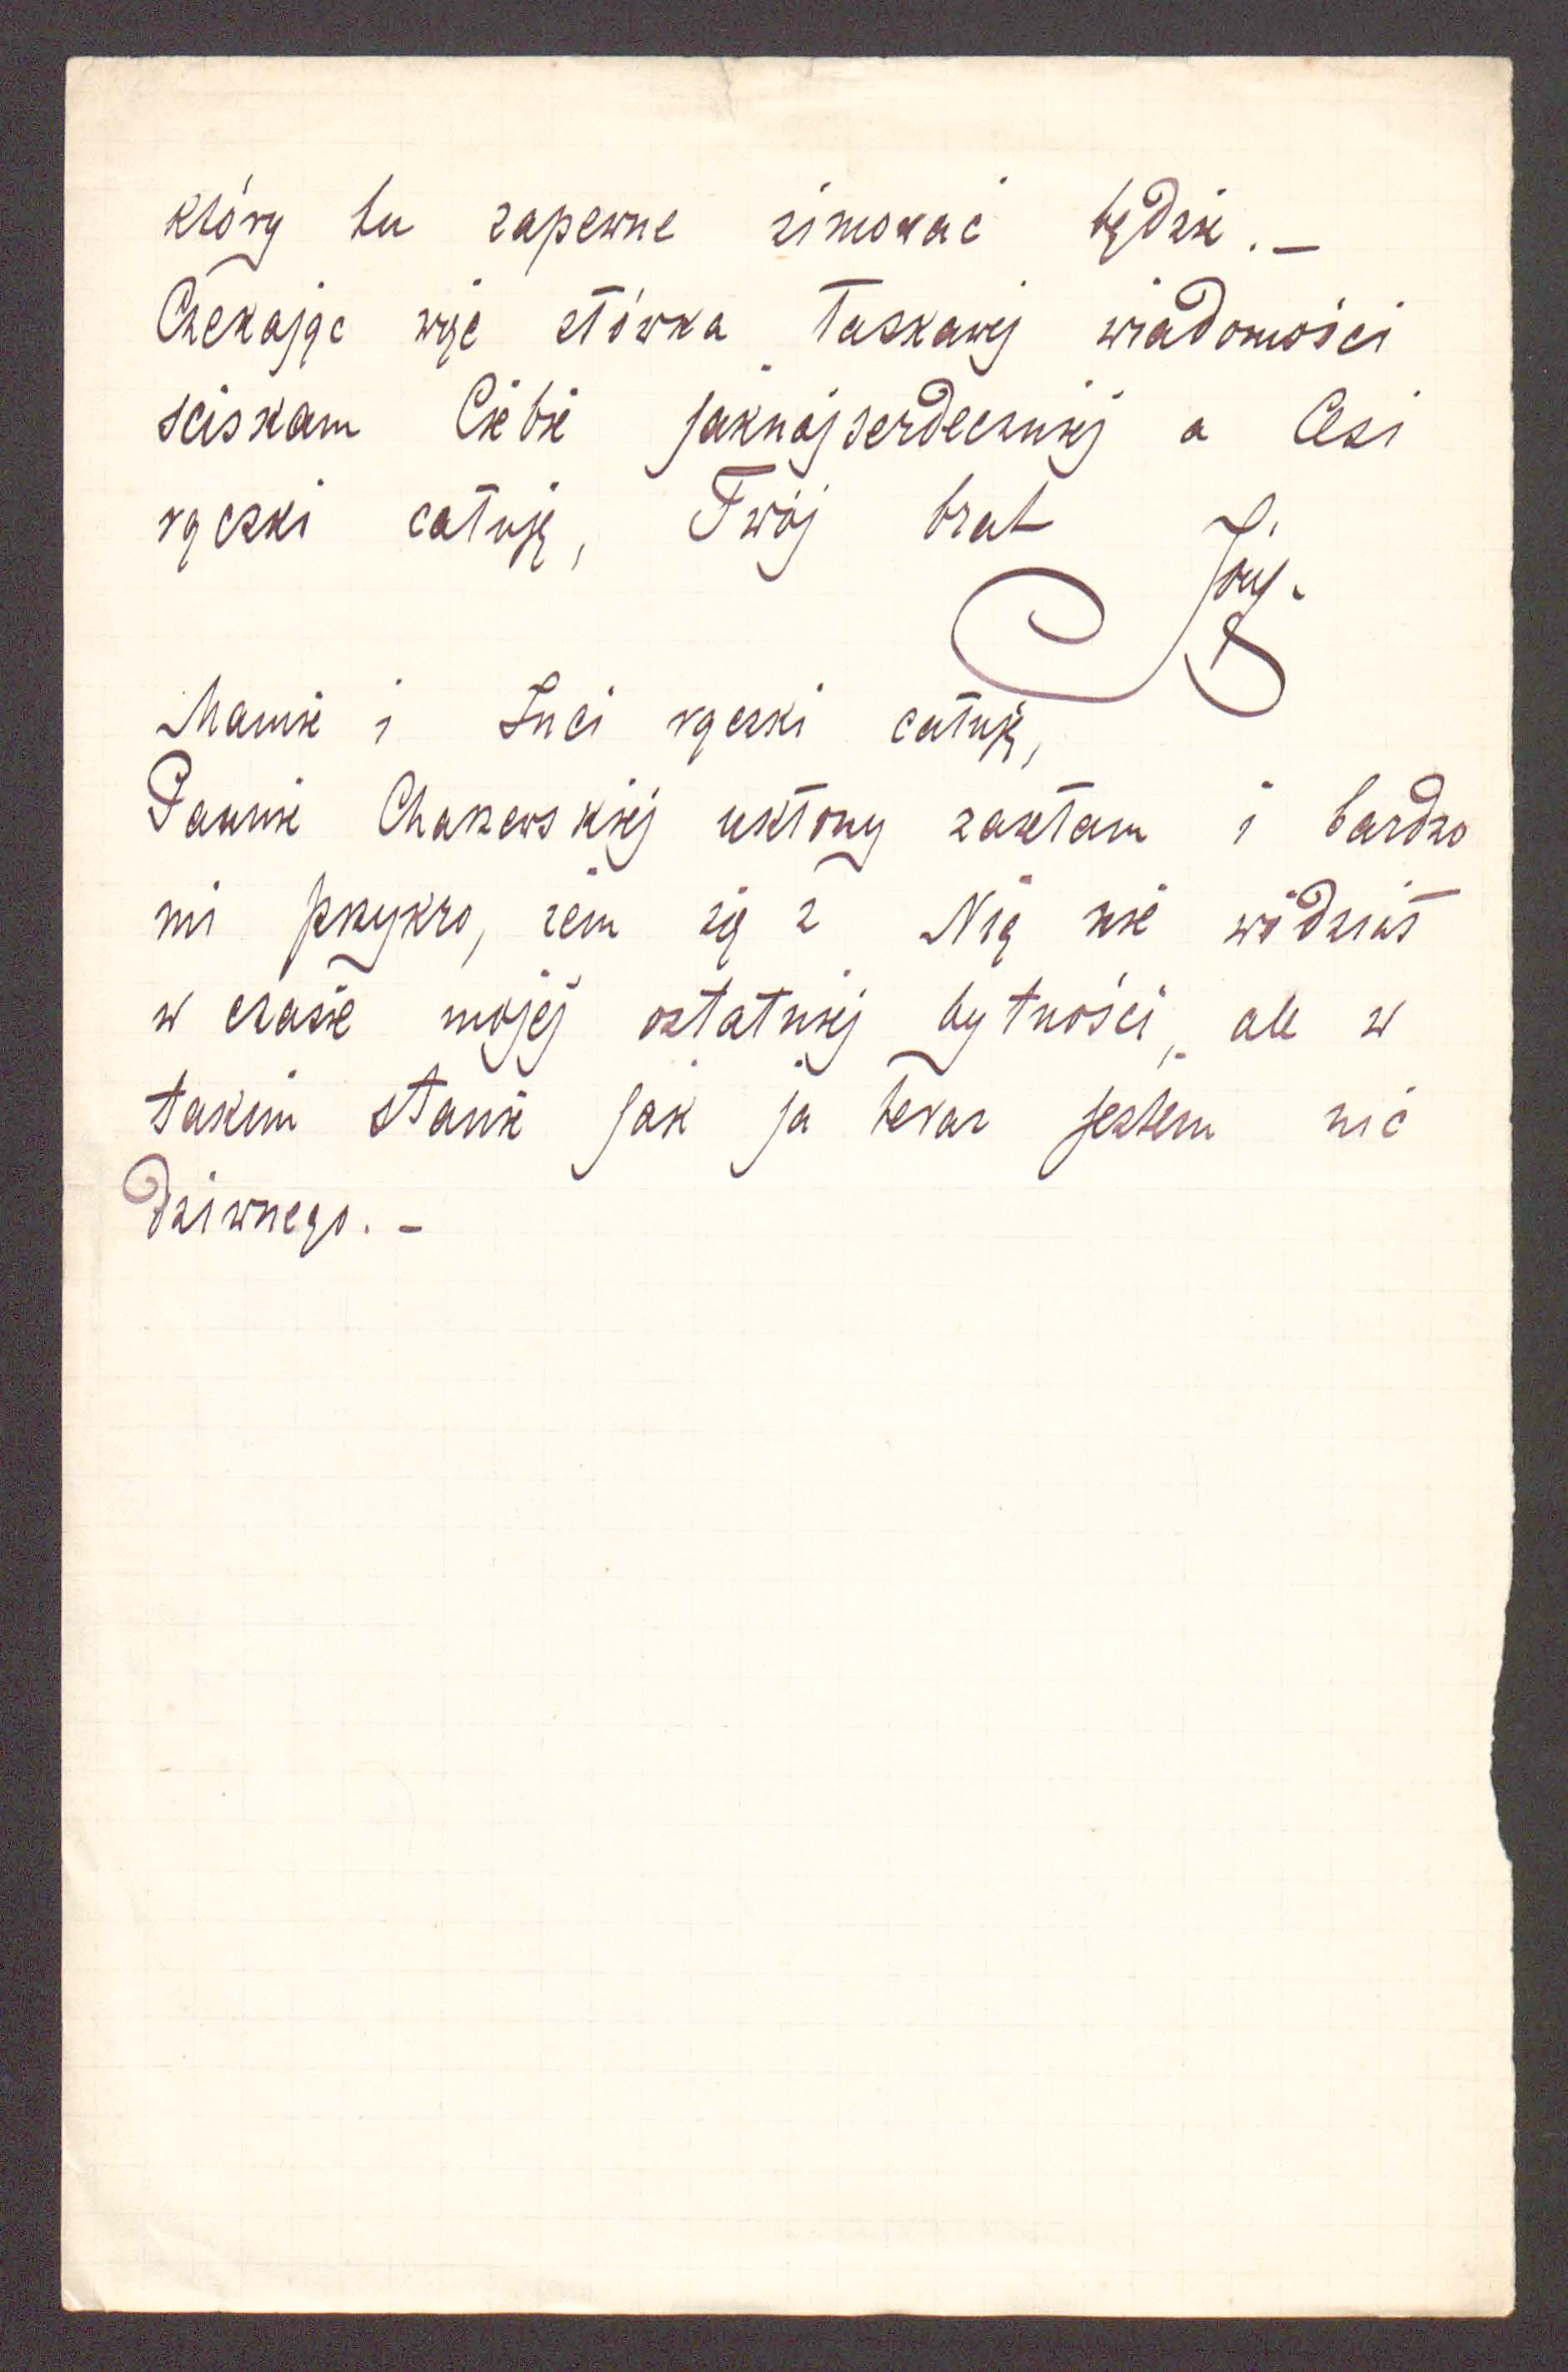 który tu zapewne zimować będzie. —
Czekając więc słówka łaskawej wiadomości
ściskam Ciebie jaknajserdeczniej a Cesi
rączki całuję, Twój brat
Mamie i Luci rączki całuję,
Pannie ukłony zasełam i bardzo
mi przykro, żem się z Nią nie widział
w czasie mojej ostatniej bytności, ale w
takim stanie jak ja teraz jestem nic
dziwnego. —